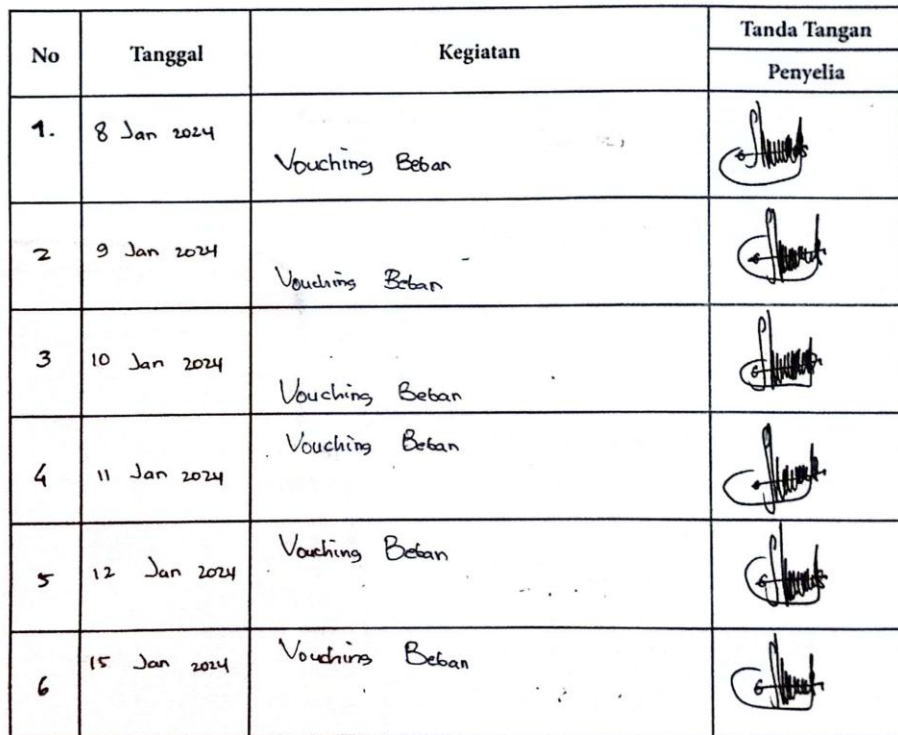 No Tanggal Kegiatan Tanda Tangan
Penyelia
1. 8 Jan 2024 Vouching Beban
2 9 Jan 2024 Vouching Beban
3 10 Jan 2024 Vouching Beban
4 11 Jan 2024 Vouching Beban
5 12 Jan 2024 Vouching Beban
6 15 Jan 2024 Vouching Beban